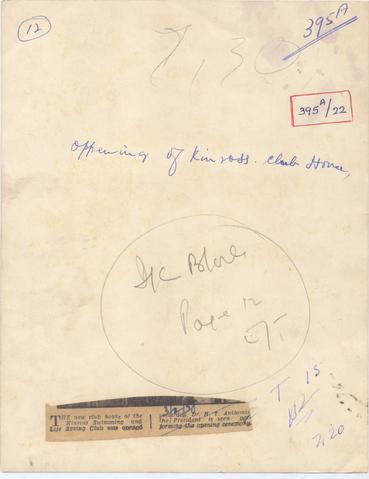 12
395A
7,30
395A/22
Oppening of Kinross. club House,
Page 12
E/T
THE new club house of the
Kinross Swimming and
Life Saving Club was opened
the President is seen per-
forming the opening ceremony.
T 15
7,20